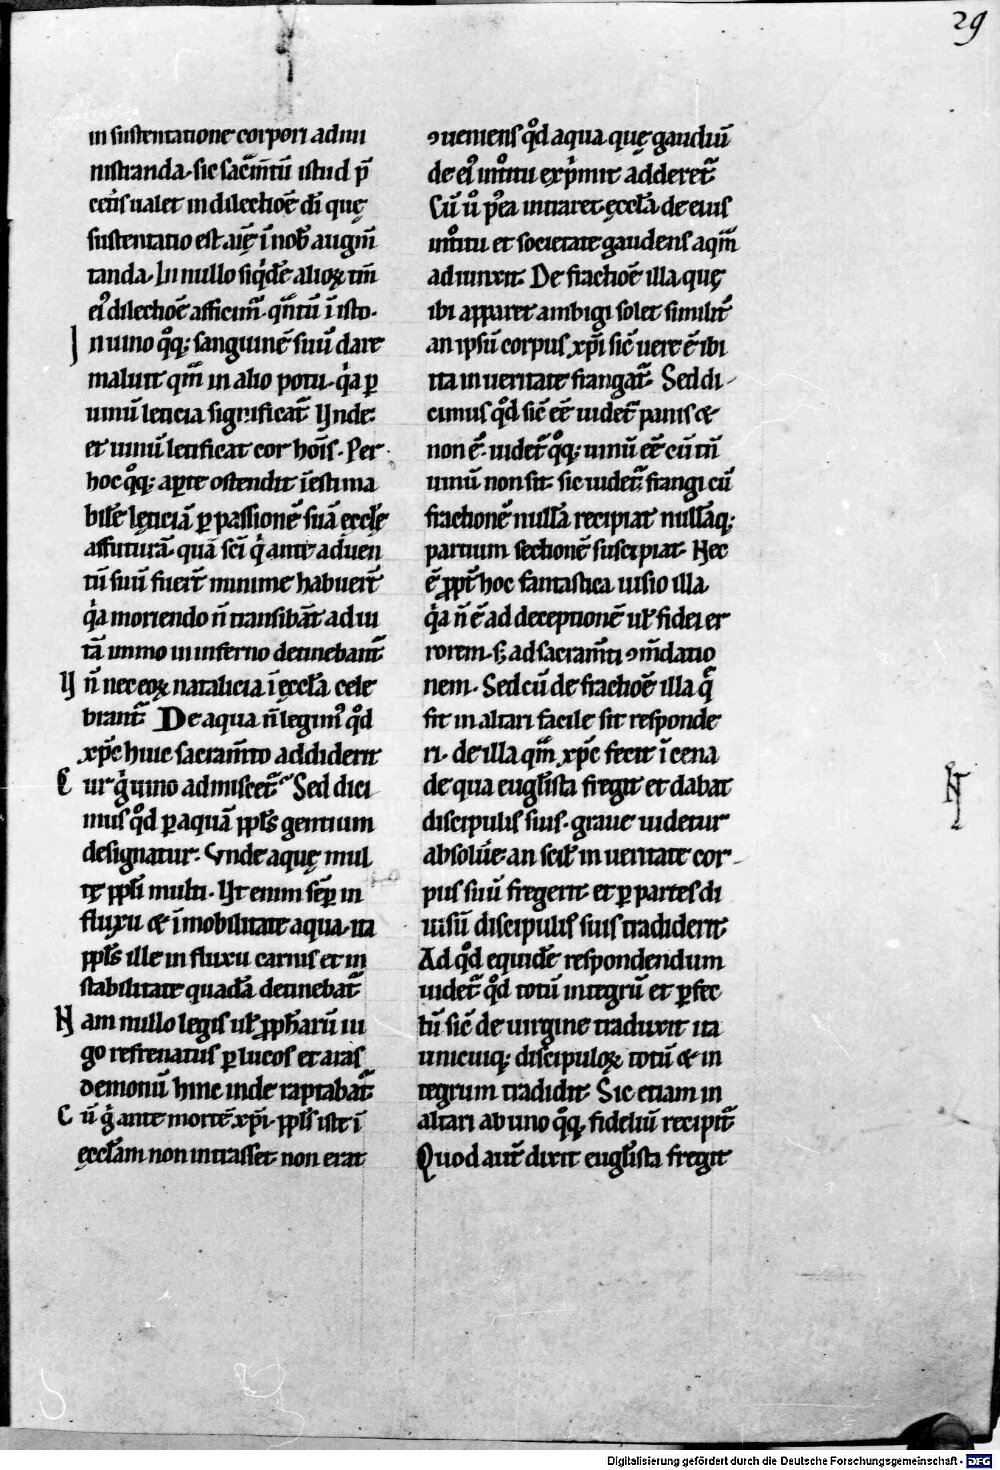 29
in sustentatione corpori admi
nistranda. sic sac̅m̅tu̅ istud p̅
ceti̾s ualet in dilectio̅e d̅i quę
sustentatio est ai̅ę i̅ nob̅ augm̅
tanda. In nullo siq̇de̅ alioꝝ tm̅
ei᾽ dilectio̅e afficim᾽. qn̅tu̅ i̅ isto.
In uino qͦq; sanguine̅ suu̅ dare
maluit qm̅ in alio potu. q̇a ꝑ
uinu̅ leticia significat᾽. Vnde.
et uinu̅ letificat cor ho̅i̅s. Per
hoc qͦq; aꝑte ostendit i̅estima
bile̅ lęticia̅ ꝑ passione̅ sua̅ ęccłę
affutura̅. qua̅ sc̅i q̇ ante aduen
tu̅ suu̅ fuer̅t minime habuer̅t
q̇a moriendo n̅ transiba̅t ad ui
ta̅ immo in inferno detinebant᾽.
Vn̅ nec eoꝝ natalicia i̅ ęccła cele
brant᾽. De aqua n̅ legim᾽ qͦd
xp̅c huic sacram̅to addiderit
Cur ġ uino admiscet᾽. Sed dici
mus qͦd ꝑ aqua̅ pp̅ls gentium
designatur. Vnde aquę mul
tę pp̅li multi. Vt enim se̅ꝑ in
fluxu & i̅mobilitate aqua. ita
pp̅ls ille in fluxu carnis et in
stabilitate quada̅ detinebat᾽.
Nam nullo legis ul̅ ꝓph̅aru̅ iu
go refrenatus ꝑ lucos et aras
demoniu̅ hinc inde raptabat᾽.
Cu̅ ġ ante morte̅ xp̅i. pp̅ls iste i̅
ęccłam non intrasset non erat
ꝯueniens qͦd aqua quę gaudiu̅
de ei᾽ int̊itu exp̍mit adderet᾽
Cu̅ ů p᾽ea intraret. ęccła de eius
int̊itu et societate gaudens aqm̅
adiunxit. De fractio̅e illa. quę
ibi apparet ambigi solet similit᾽
an ipsu̅ corpus xp̅i sic̅ uere e̅ ibi
ita in ueritate frangat᾽. Sed di
cimus qͦd sic̅ e̅e̅ uidet᾽ panis &
non e̅. uidet᾽ qͦq; uinu̅ e̅e̅ cu̅ tn̅
uinu̅ non sit. sic uidet᾽ frangi cu̅
fractione̅ nulła recipiat nulła̅q;
partium sectione̅ suscipiat. Nec
e̅ ꝓpt᾽ hoc fantastica uisio illa
q̇a n̅ e̅ ad deceptione̅ ul̅ fidei er
rorem. s; ad sacram̅ti ꝯm̅datio
nem. Sed cu̅ de fractio̅e illa q̅
fit in altari facile sit responde
ri. de illa qm̅ xp̅c fecit i̅ cena
de qua eugłista fregit et dabat
discipulis suis. graue uidetur
absolu᾽e. an scil̅ in ueritate cor
pus suu̅ fregerit. et ꝑ partes di
uisu̅ discipulis suis tradiderit.
Ad qͦd equide̅ respondendum
uidet᾽ qͦd totu̅ integru̅ et ꝑfec
tu̅ sic̅ de uirgine traduxit ita
unicuiq; discipuloꝝ totu̅ & in
tegrum tradidit. Sic etiam in
altari ab uno qͦq; fideliu̅ recipit᾽
Quod aut̅ dixit eugłista fregit
Digitalisierung gefördert durch die Deutsche Forschungsgemeinschaft - DFG